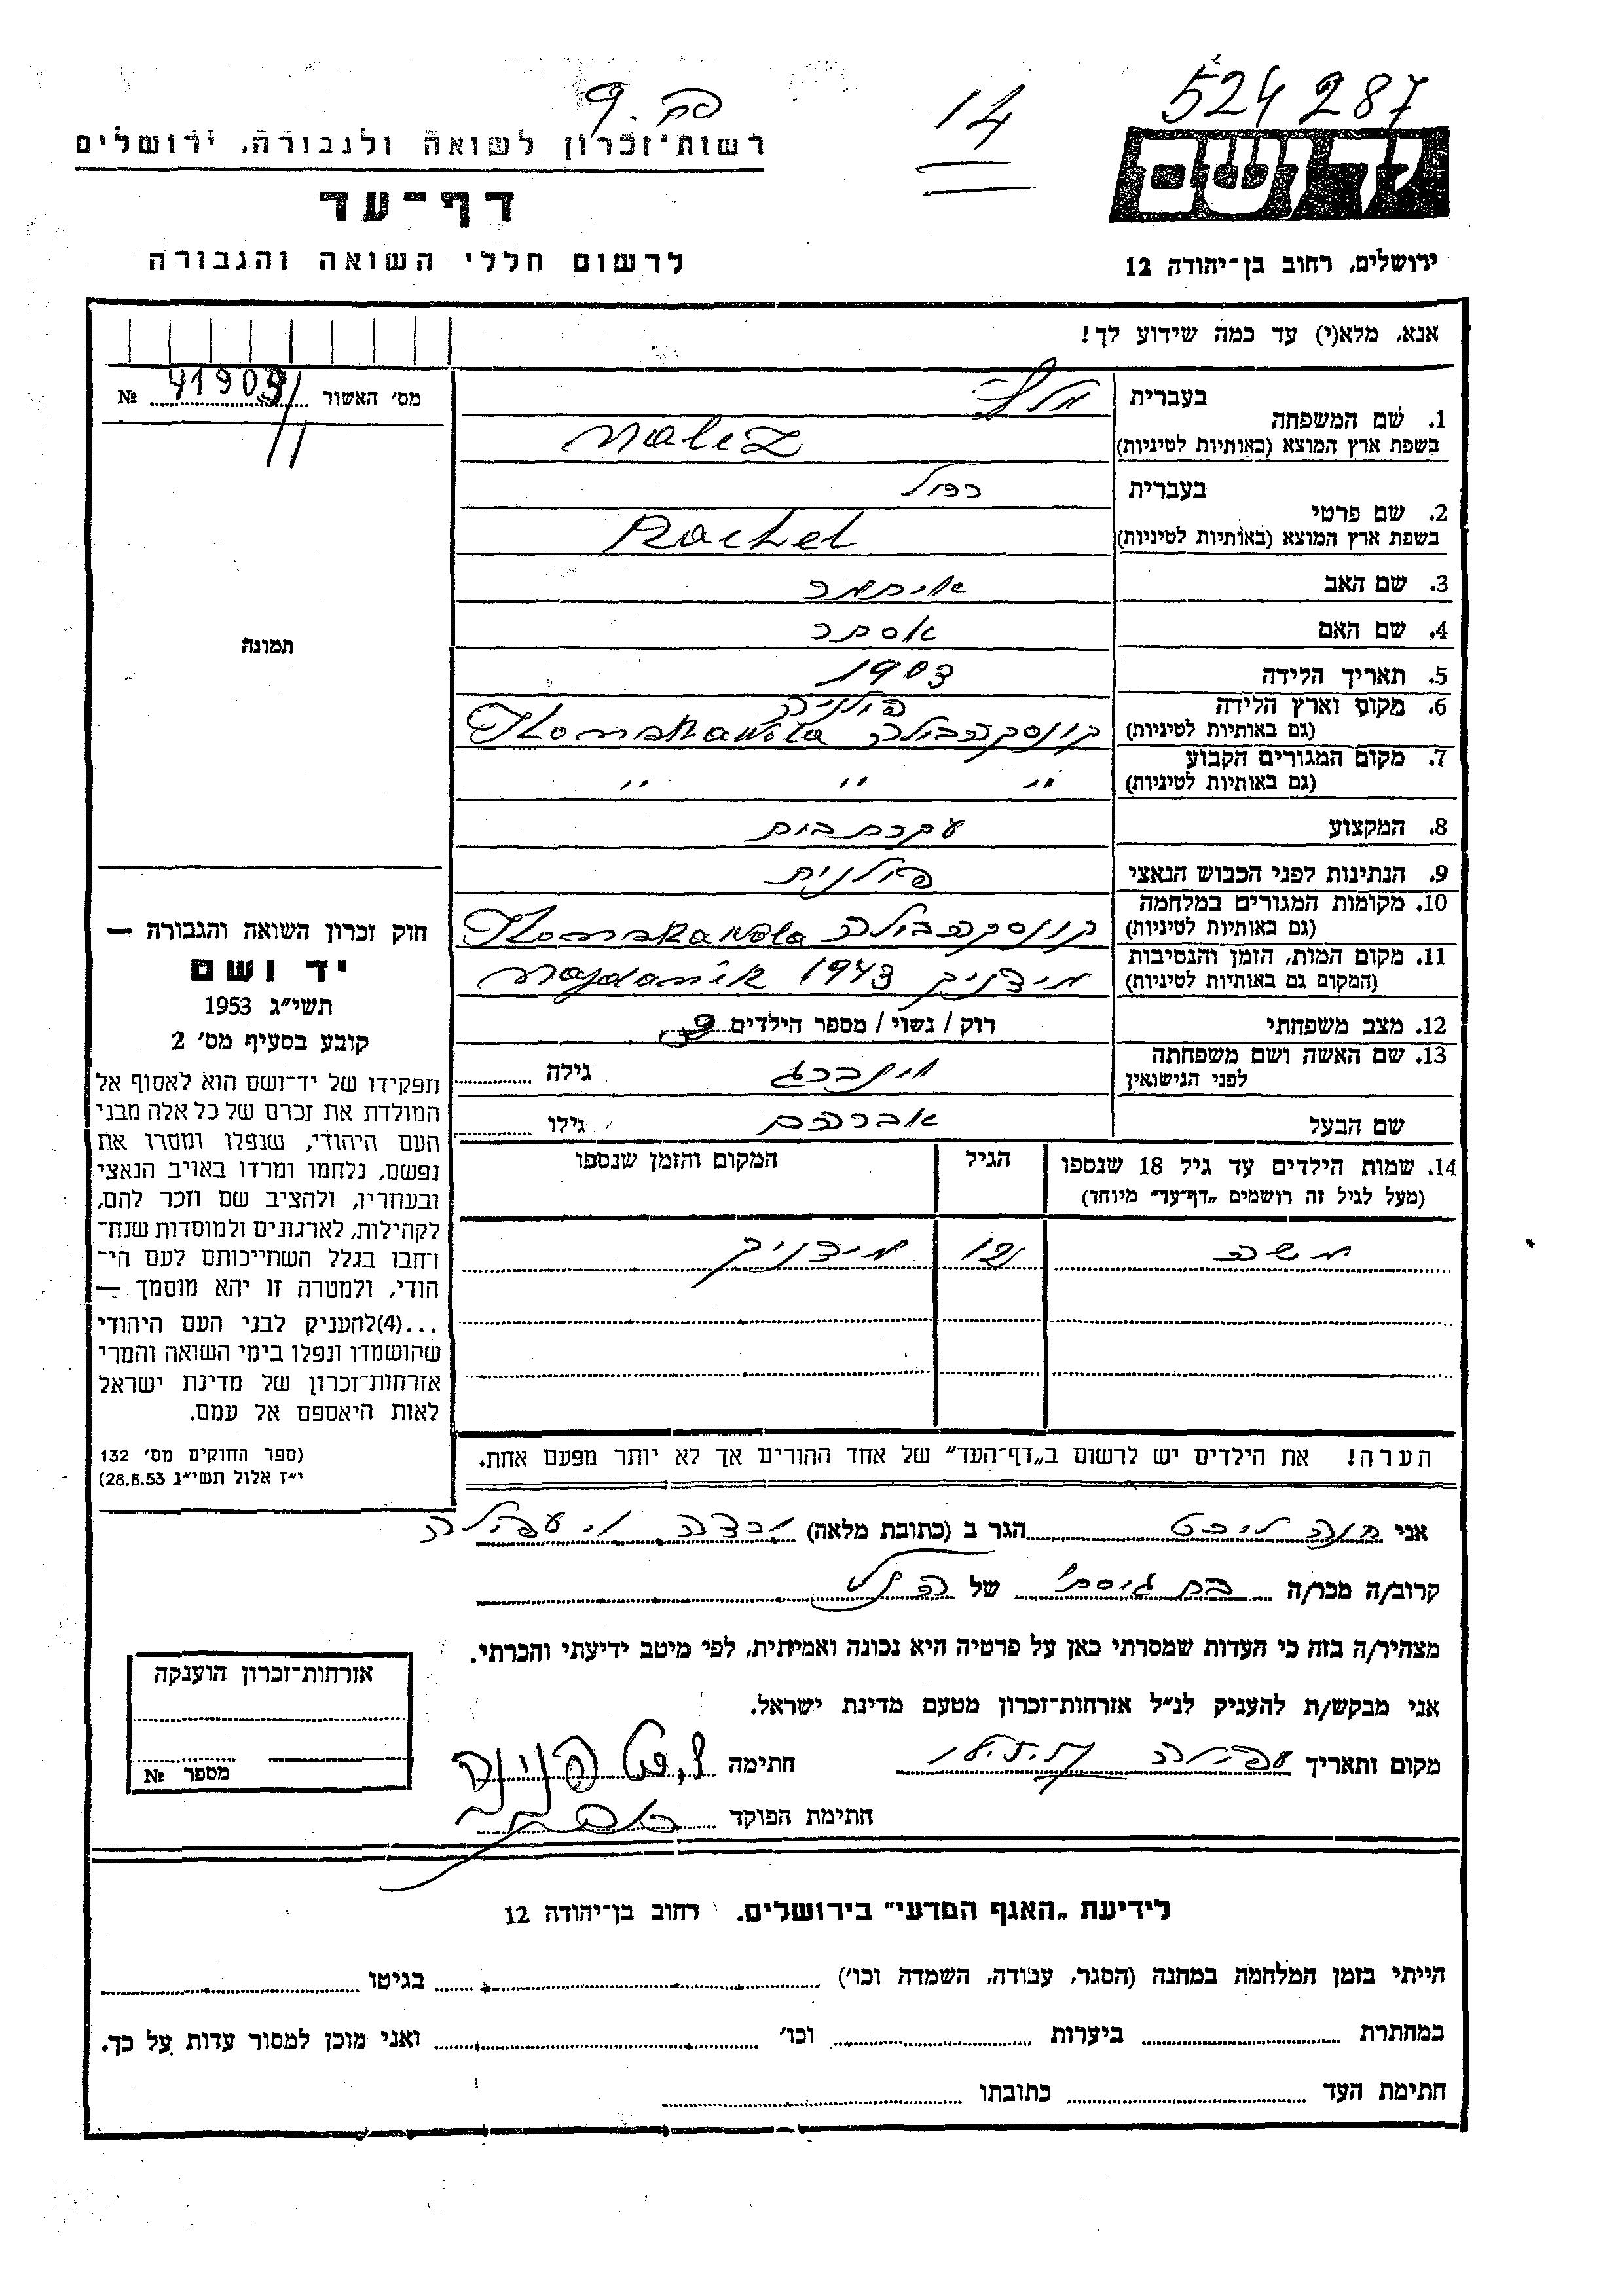 524 287
14
פק. 9
יד ושם
רשות־זכרון לשואה ולגבורה, ירושלים
דף־עד
לרשום חללי השואה והגבורה
ירושלים, רחוב בן־יהודה 12
אנא, מלא(י) עד כמה שידוע לך!
מס׳ האשור № 41909
1. שם המשפחה בעברית מלץ
בשפת ארץ המוצא (באותיות לטיניות) Malez
2. שם פרטי בעברית רחל
בשפת ארץ המוצא (באותיות לטיניות) Rachel
3. שם האב איתמר
4. שם האם אסתר
5. תאריך הלידה 1903
6. מקום וארץ הלידה (גם באותיות לטיניות) קונסקהבולה Konskawola פולניה
7. מקום המגורים הקבוע (גם באותיות לטיניות) " " "
8. המקצוע עקרת בית
9. הנתינות לפני הכבוש הנאצי פולנית
10. מקומות המגורים במלחמה (גם באותיות לטיניות) קונסקהבולה Konskawola
11. מקום המות, הזמן והנסיבות (המקום גם באותיות לטיניות) מידניק 1943 Majdanik
12. מצב משפחתי רוק / נשוי / מספר הילדים
13. שם האשה ושם משפחתה לפני הנישואין וינברג גילה
שם הבעל אברהם גילו
14. שמות הילדים עד גיל 18 שנספו (מעל לגיל זה רושמים „דף־עד" מיוחד) הגיל המקום והזמן שנספו
משה 12 מידניק
הערה! את הילדים יש לרשום ב„דף־העד" של אחד ההורים אך לא יותר מפעם אחת.
תמונה
חוק זכרון השואה והגבורה —
יד ושם
תשי״ג 1953
קובע בסעיף מס׳ 2
תפקידו של יד־ושם הוא לאסוף אל
המולדת את זכרם של כל אלה מבני
העם היהודי, שנפלו ומסרו את
נפשם, נלחמו ומרדו באויב הנאצי
ובעוזריו, ולהציב שם וזכר להם,
לקהילות, לארגונים ולמוסדות שנח־
רחבו בגלל השתייכותם לעם הי־
הודי, ולמטרה זו יהא מוסמך —
...(4)להעניק לבני העם היהודי
שהושמדו ונפלו בימי השואה והמרי
אזרחות־זכרון של מדינת ישראל
לאות היאספם אל עמם.
(ספר החוקים מס׳ 132
י״ז אלול תשי״ג 28.8.53)
אני חנה ליכט הגר ב (כתובת מלאה) עפולה
קרוב/ה מכר/ה בת גיסתי של הנ״ל
מצהיר/ה בזה כי העדות שמסרתי כאן על פרטיה היא נכונה ואמיתית, לפי מיטב ידיעתי והכרתי.
אני מבקש/ת להעניק לנ״ל אזרחות־זכרון מטעם מדינת ישראל.
מקום ותאריך עפולה חתימה
חתימת הפוקד
אזרחות־זכרון הוענקה
מספר №
לידיעת „האגף המדעי" בירושלים. רחוב בן־יהודה 12
הייתי בזמן המלחמה במחנה (הסגר, עבודה, השמדה וכו׳) בגיטו
במחתרת ביערות וכו׳ ואני מוכן למסור עדות על כך.
חתימת העד כתובתו